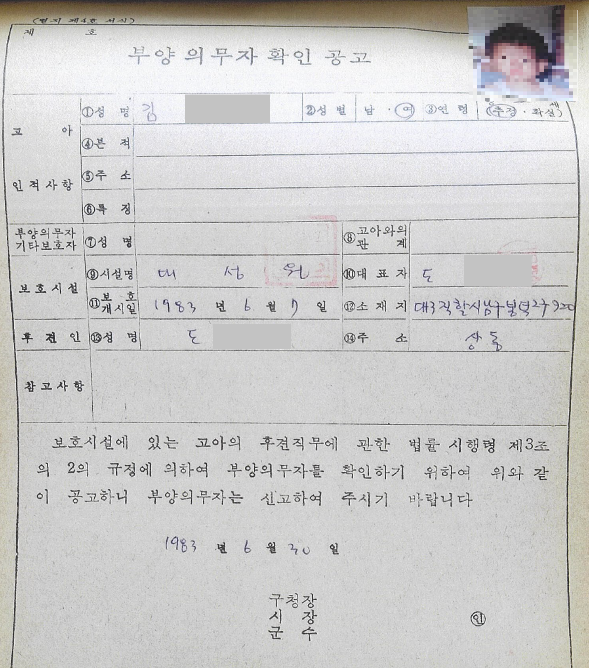 (별지 제4호 서식)
제 호
부양의무자확인공고
고 아
인적사항
①성 명 김
②성 별 남 · 여 ③연 령 (추정 · 확실)
④본 적
⑤주 소
⑥특 징
부양의무자
기타보호자
⑦성 명
⑧고아와의
관 계
보호시설
⑨시설명 대 성 원
⑩대 표 자 도
⑪보 호
개시일
1983 년 6 월 7 일
⑫소 재 지 대구직할시남구봉덕2구920
후견인 ⑬성 명 도
⑭주 소 상동
참고사항
보호시설에 있는 고아의 후견직무에 관한 법률 시행령 제3조
의 2의 규정에 의하여 부양의무자를 확인하기 위하여 위와 같
이 공고하니 부양의무자는 신고하여 주시기 바랍니다
1983 년 6 월 30 일
구청장
시 장
군 수
인